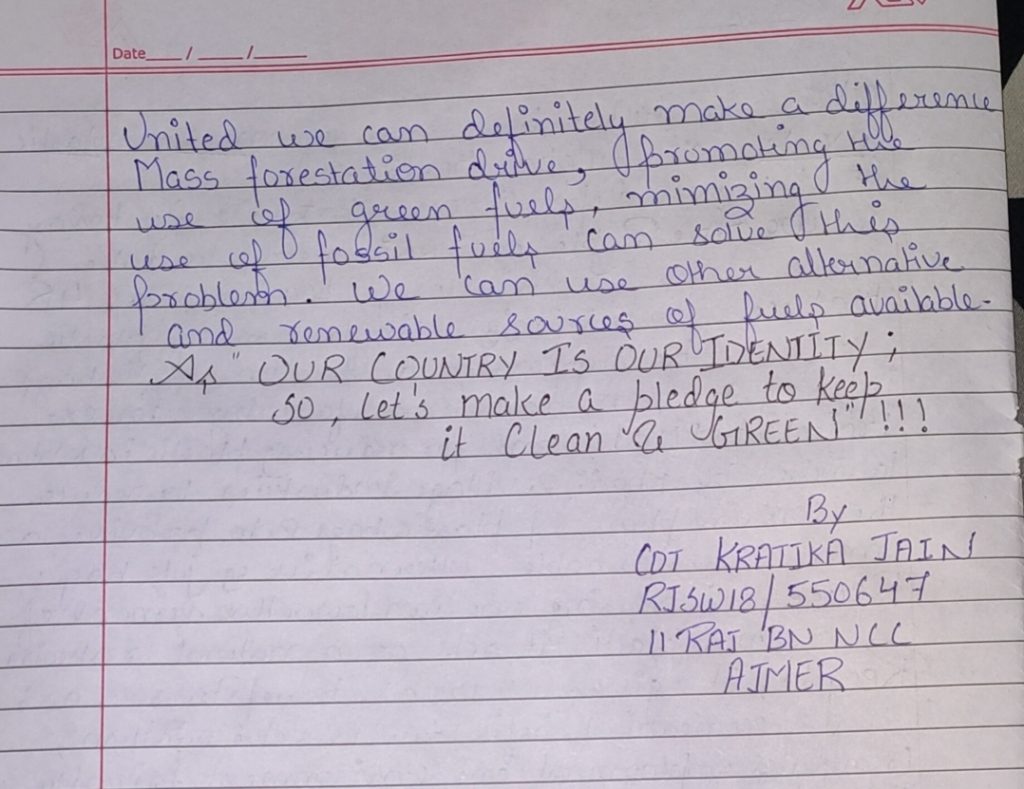 Date___/___/___
United we can definitely make a difference
Mass forestation drive, promoting the
use of green fuels, mimizing the
use of fossil fuels can solve this
problem. We can use other alternative
and renewable sources of fuels available.
As " OUR COUNTRY IS OUR IDENTITY ;
SO, Let's make a pledge to keep
it Clean & GREEN" !!!
By
CDT KRATIKA JAIN
RJSW18/550647
11 RAJ BN NCC
AJMER